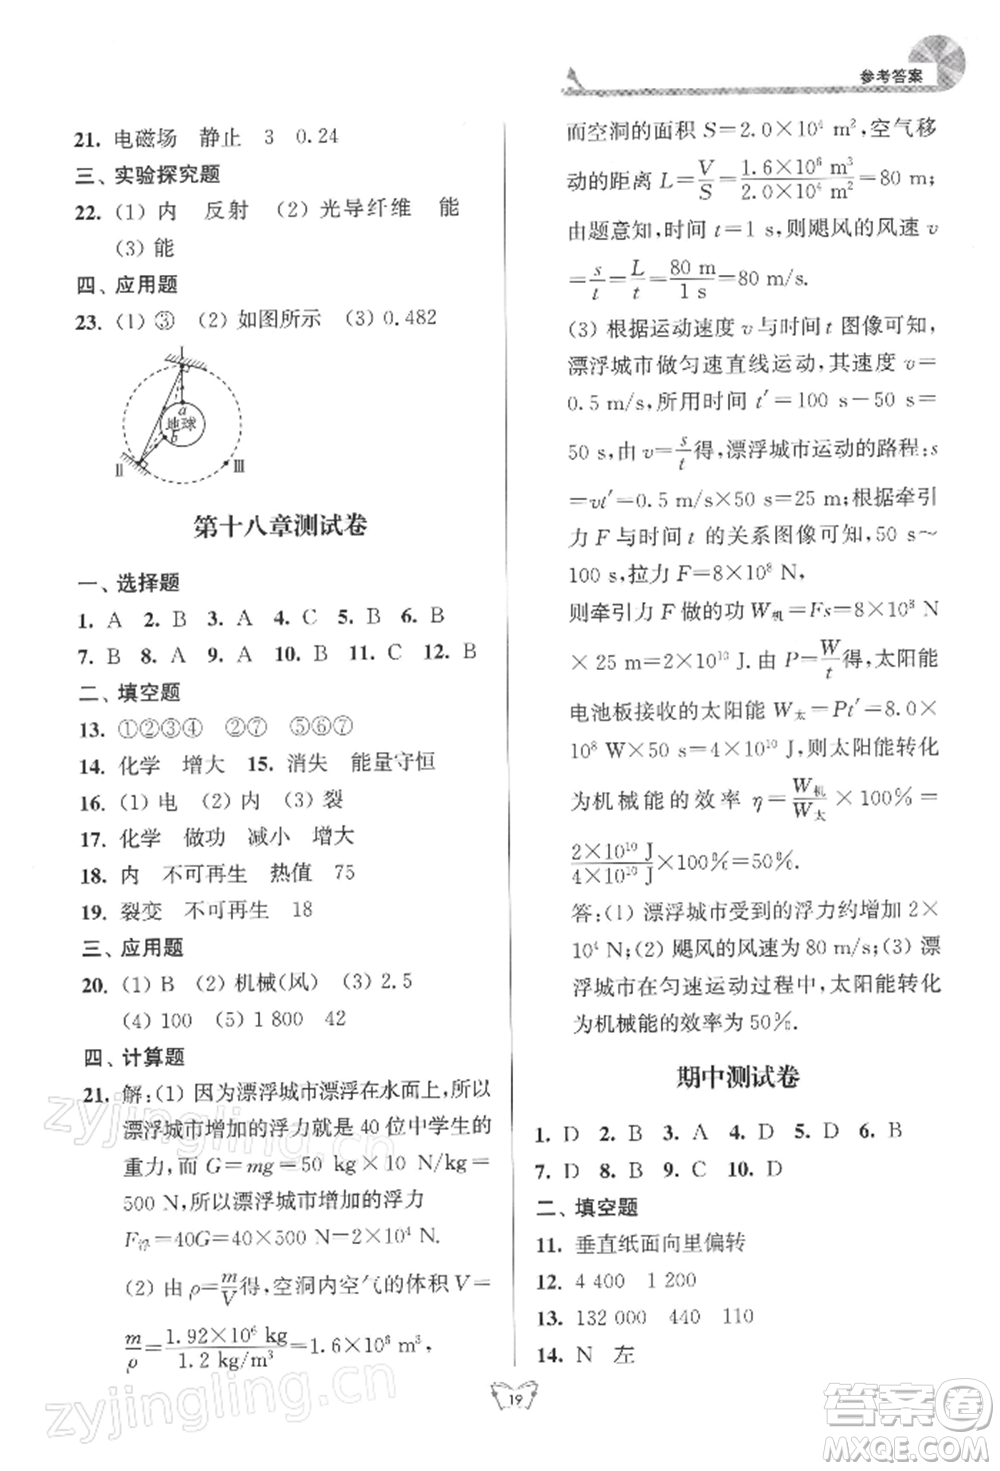 参考答案
21. 电磁场 静止 3 0.24
三、实验探究题
22. (1) 内 反射 (2) 光导纤维 能
(3) 能
四、应用题
23. (1) ③ (2) 如图所示 (3) 0.482
a
地球
b
Ⅱ
Ⅲ
第十八章测试卷
一、选择题
1. A 2. B 3. A 4. C 5. B 6. B
7. B 8. A 9. A 10. B 11. C 12. B
二、填空题
13. ①②③④ ②⑦ ⑤⑥⑦
14. 化学 增大 15. 消失 能量守恒
16. (1) 电 (2) 内 (3) 裂
17. 化学 做功 减小 增大
18. 内 不可再生 热值 75
19. 裂变 不可再生 18
三、应用题
20. (1) B (2) 机械(风) (3) 2.5
(4) 100 (5) 1 800 42
四、计算题
21. 解:(1) 因为漂浮城市漂浮在水面上,所以
漂浮城市增加的浮力就是 40 位中学生的
重力,而 G=mg=50 kg×10 N/kg=
500 N,所以漂浮城市增加的浮力
F浮=40G=40×500 N=2×10⁴ N.
(2) 由 ρ=m/V得,空洞内空气的体积 V=
m/ρ=1.92×10⁶ kg/1.2 kg/m³=1.6×10⁶ m³,
而空洞的面积 S=2.0×10⁴ m²,空气移
动的距离 L=V/S=1.6×10⁶ m³/2.0×10⁴ m²=80 m;
由题意知,时间 t=1 s,则飓风的风速 v
=s/t=L/t=80 m/1 s=80 m/s.
(3) 根据运动速度 v 与时间 t 图像可知,
漂浮城市做匀速直线运动,其速度 v=
0.5 m/s,所用时间 t′=100 s-50 s=
50 s,由 v=s/t得,漂浮城市运动的路程:s
=vt′=0.5 m/s×50 s=25 m;根据牵引
力 F 与时间 t 的关系图像可知,50 s~
100 s,拉力 F=8×10⁸ N,
则牵引力 F 做的功 W机=Fs=8×10⁸ N
×25 m=2×10¹⁰ J.由 P=W/t得,太阳能
电池板接收的太阳能 W太=Pt′=8.0×
10⁸ W×50 s=4×10¹⁰ J,则太阳能转化
为机械能的效率 η=W机/W太×100%=
2×10¹⁰ J/4×10¹⁰ J×100%=50%.
答:(1) 漂浮城市受到的浮力约增加 2×
10⁴ N;(2) 飓风的风速为 80 m/s;(3) 漂
浮城市在匀速运动过程中,太阳能转化
为机械能的效率为 50%.
期中测试卷
1. D 2. B 3. A 4. D 5. D 6. B
7. D 8. B 9. C 10. D
二、填空题
11. 垂直纸面向里偏转
12. 4 400 1 200
13. 132 000 440 110
14. N 左
19
zyjingling.com
zyjingling.cn
答案圈
MXQE.COM